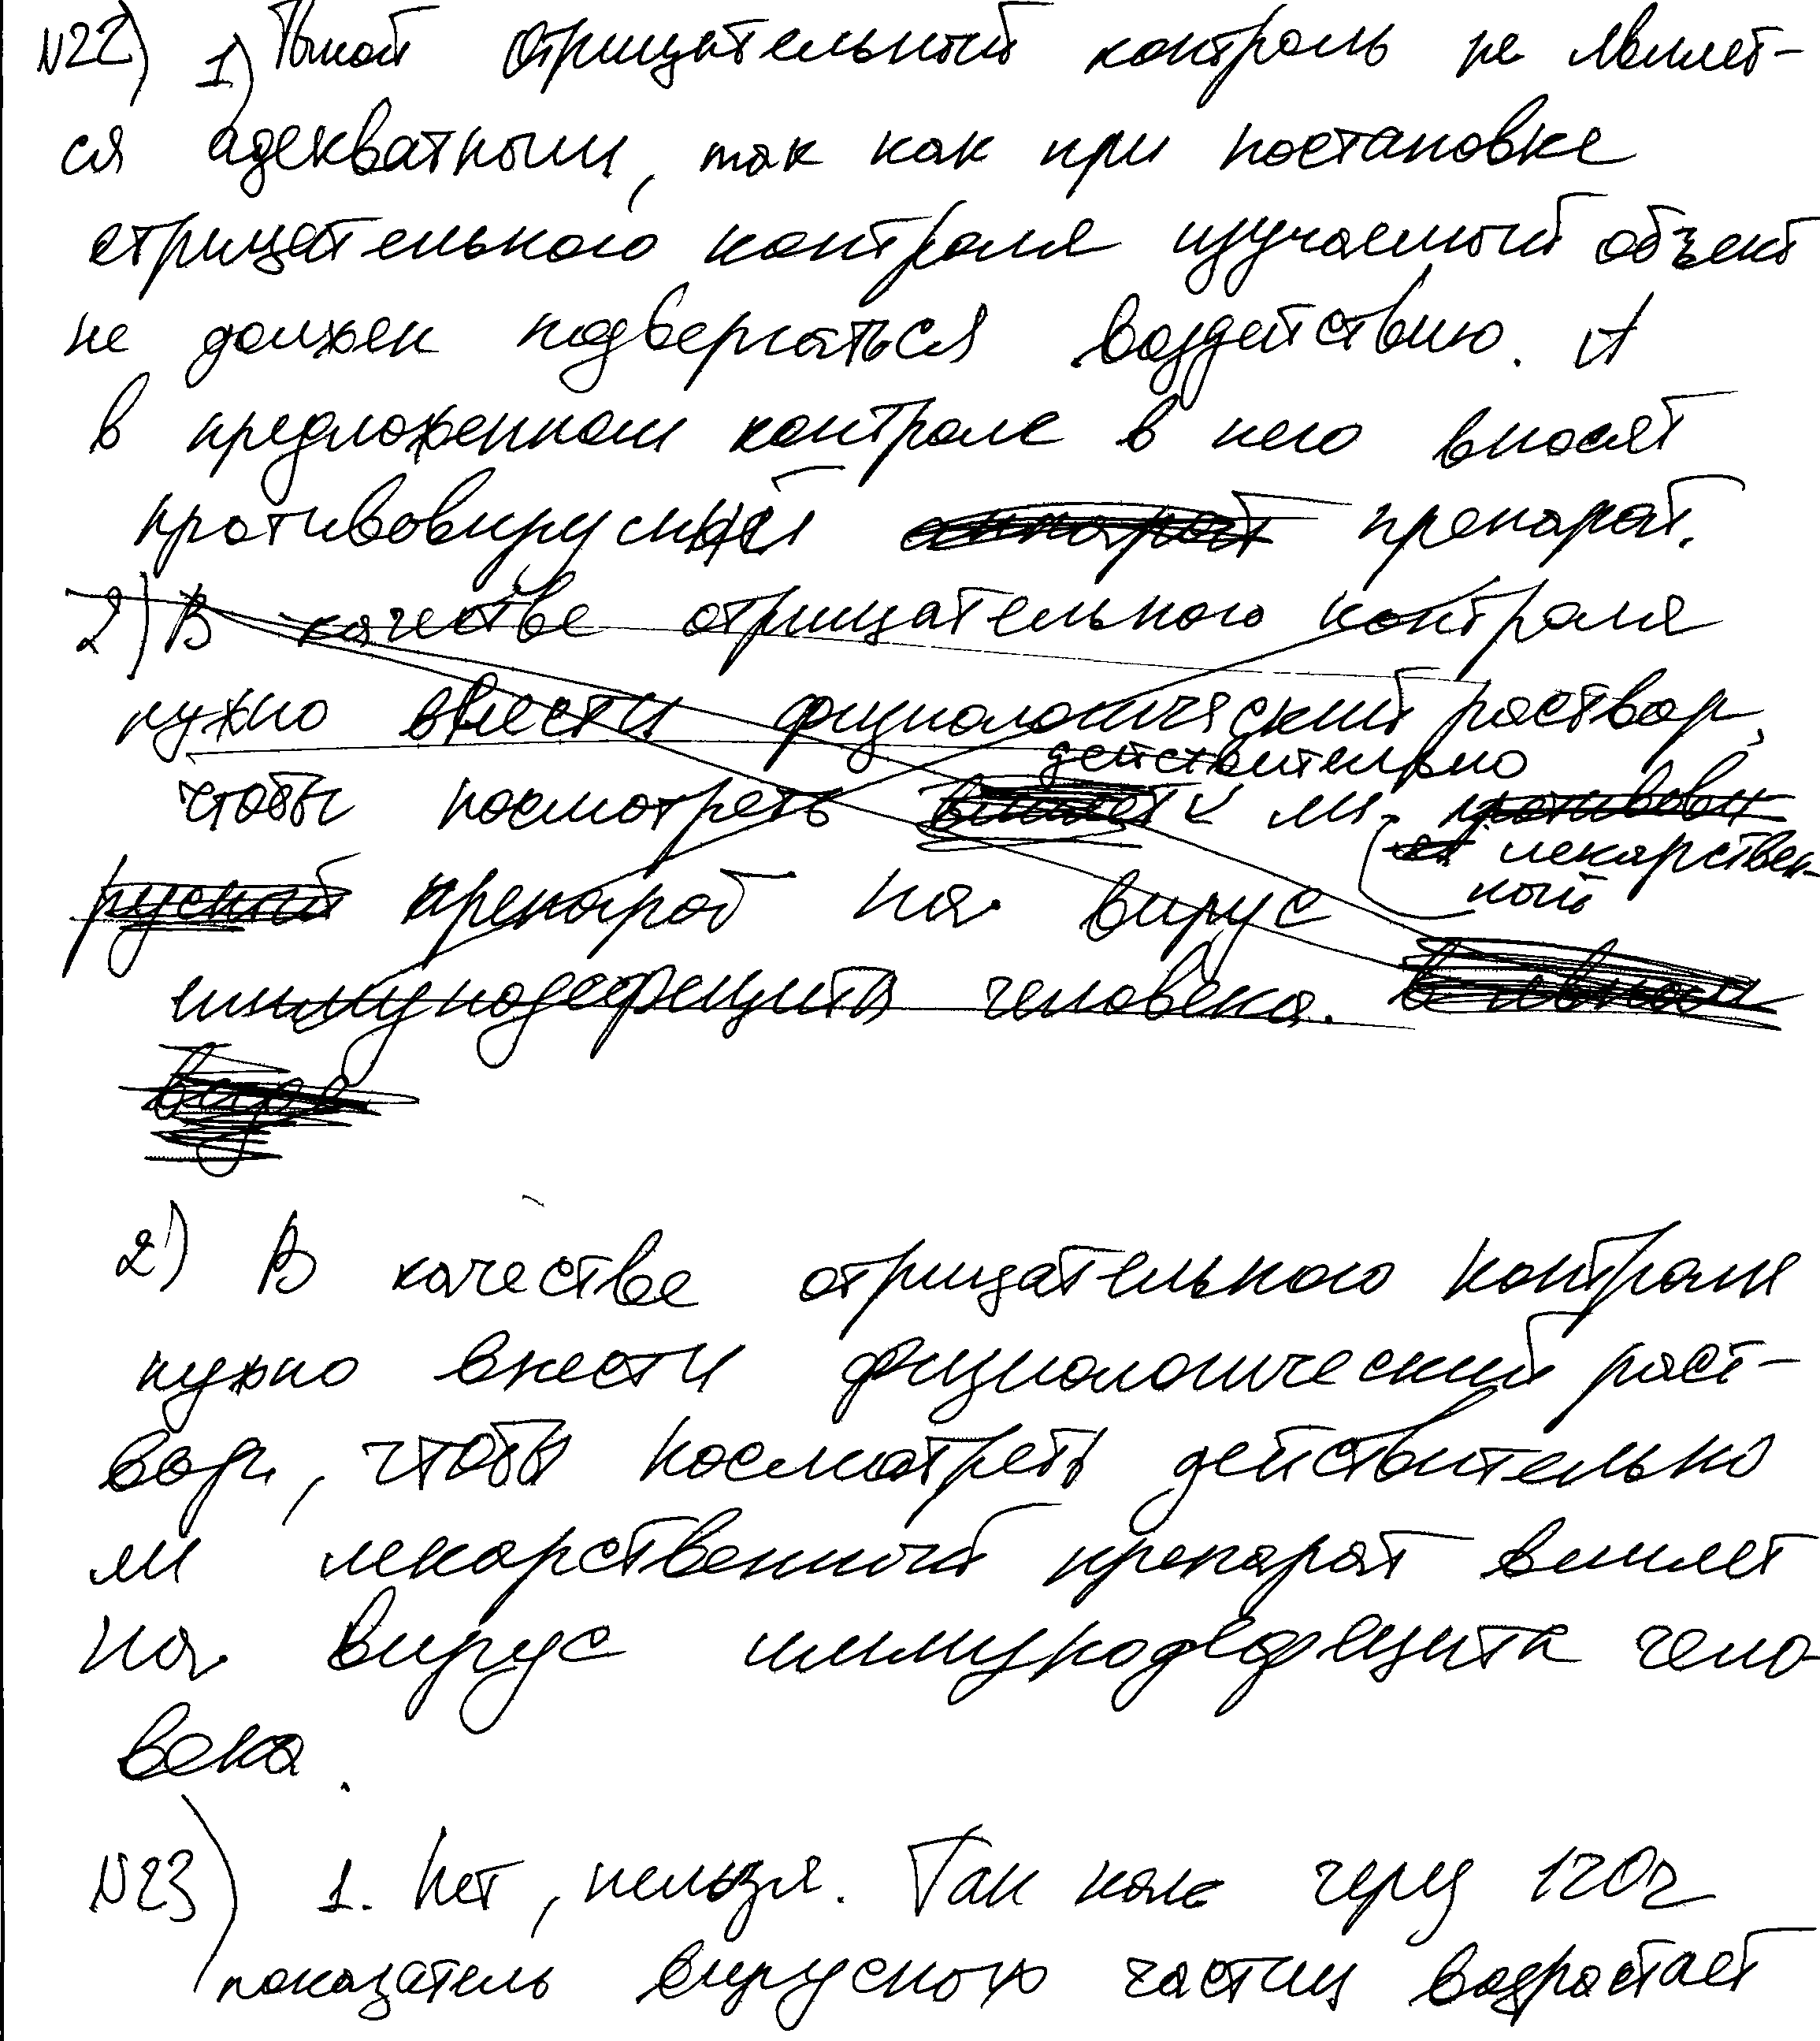 №22) 1) Такой отрицательный контроль не являет-
ся адекватным, так как при постановке
отрицательного контроля изучаемый объект
не должен подвергаться воздействию. А
в предложенном контроле в него вносят
противовирусный препарат.
2) В качестве отрицательного контроля
нужно ввести физиологический раствор,
действительно
чтобы посмотреть ли противови
лекарствен-
русный препарат на вирус
ный
иммунодефицита человека.
2) В качестве отрицательного контроля
нужно внести физиологический раст-
вор, чтобы посмотреть действительно
ли лекарственный препарат влияет
на вирус иммунодефицита чело-
века.
№23) 1. Нет, нельзя. Так как через 120ч
показатель вирусной частиц возрастает